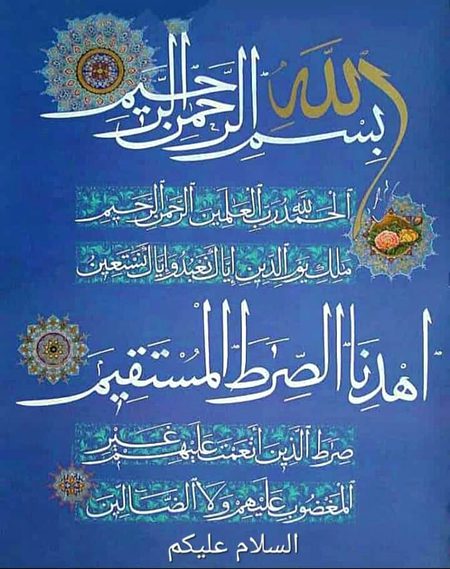 بِسْمِ اللَّهِ الرَّحْمَٰنِ الرَّحِيمِ
الحَمدُ للهِ رَبِّ العٰلَمينَ الرَّحمٰنِ الرَّحيمِ
مٰلِكِ يَومِ الدِّينِ إيّاكَ نَعبُدُ وَإيّاكَ نَستَعينُ
اهْدِنَا الصِّرَٰطَ المُسْتَقِيمَ
صِرٰطَ الَّذينَ أنعَمتَ عَلَيهِم غَيرِ
المَغضوبِ عَلَيهِم وَلَا الضّالّينَ
السلام عليكم